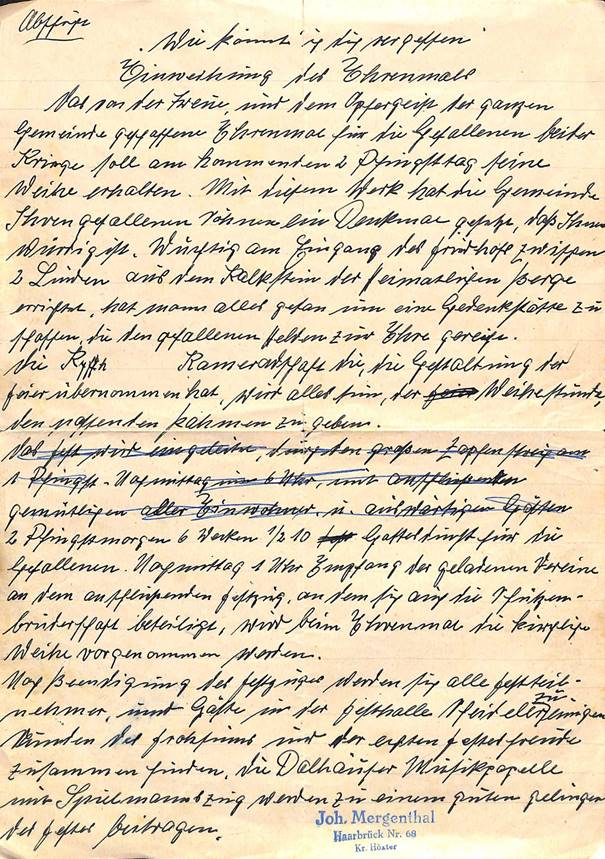 Abschrift
„Wie könnt' ich dich vergessen"
Einweihung des Ehrenmals
Das von der Treue, und dem Opfergeist der ganzen
Gemeinde geschaffene Ehrenmal für die Gefallenen beider
Kriege soll am kommenden 2 Pfingsttag seine
Weihe erhalten. Mit diesem Werk hat die Gemeinde
Ihren gefallenen Söhnen ein Denkmal gesetzt, daß Ihnen
würdig ist. Wuchtig am Eingang des Friedhofs zwischen
2 Linden aus dem Kalkstein der Heimatlichen Berge
errichtet, hat mann alles getan um eine Gedenkstätte zu
schaffen, die den gefallenen Helden zur Ehre gereicht.
die Kyffh Kameradschaft die, die Gestaltung der
feier übernommen hat, wird alles tun, der Weihestunde,
den passenden Rahmen zu geben.
Das fest wird eingeleitet, durch den großen Zapfenstreich am
1 Pfingst. Nachmittag um 6 Uhr, mit anschließenden
gemütlichen aller Einwohner, u. auswärtigen Gästen
2 Pfingstmorgen 6 Wecken 1/2 10 Gottesdienst für die
Gefallenen. Nachmittag 1 Uhr Empfang der geladenen Vereine
an dem anschließenden festzug, an dem sich auch die Schützen-
bruderschaft beteiligt, wird beim Ehrenmal die kirchliche
Weihe vorgenommen werden.
Nach Beendigung des festzuges werden sich alle festteil-
nehmer, und Gäste in der festhalle zu einigen
Stunden des frohsinns und der echten festesfreude
zusammen finden, die Dalhauser Musikkapelle
mit Spielmannszug werden zu einem guten gelingen
des festes beitragen.
Joh. Mergenthal
Haarbrück Nr. 68
Kr. Höxter